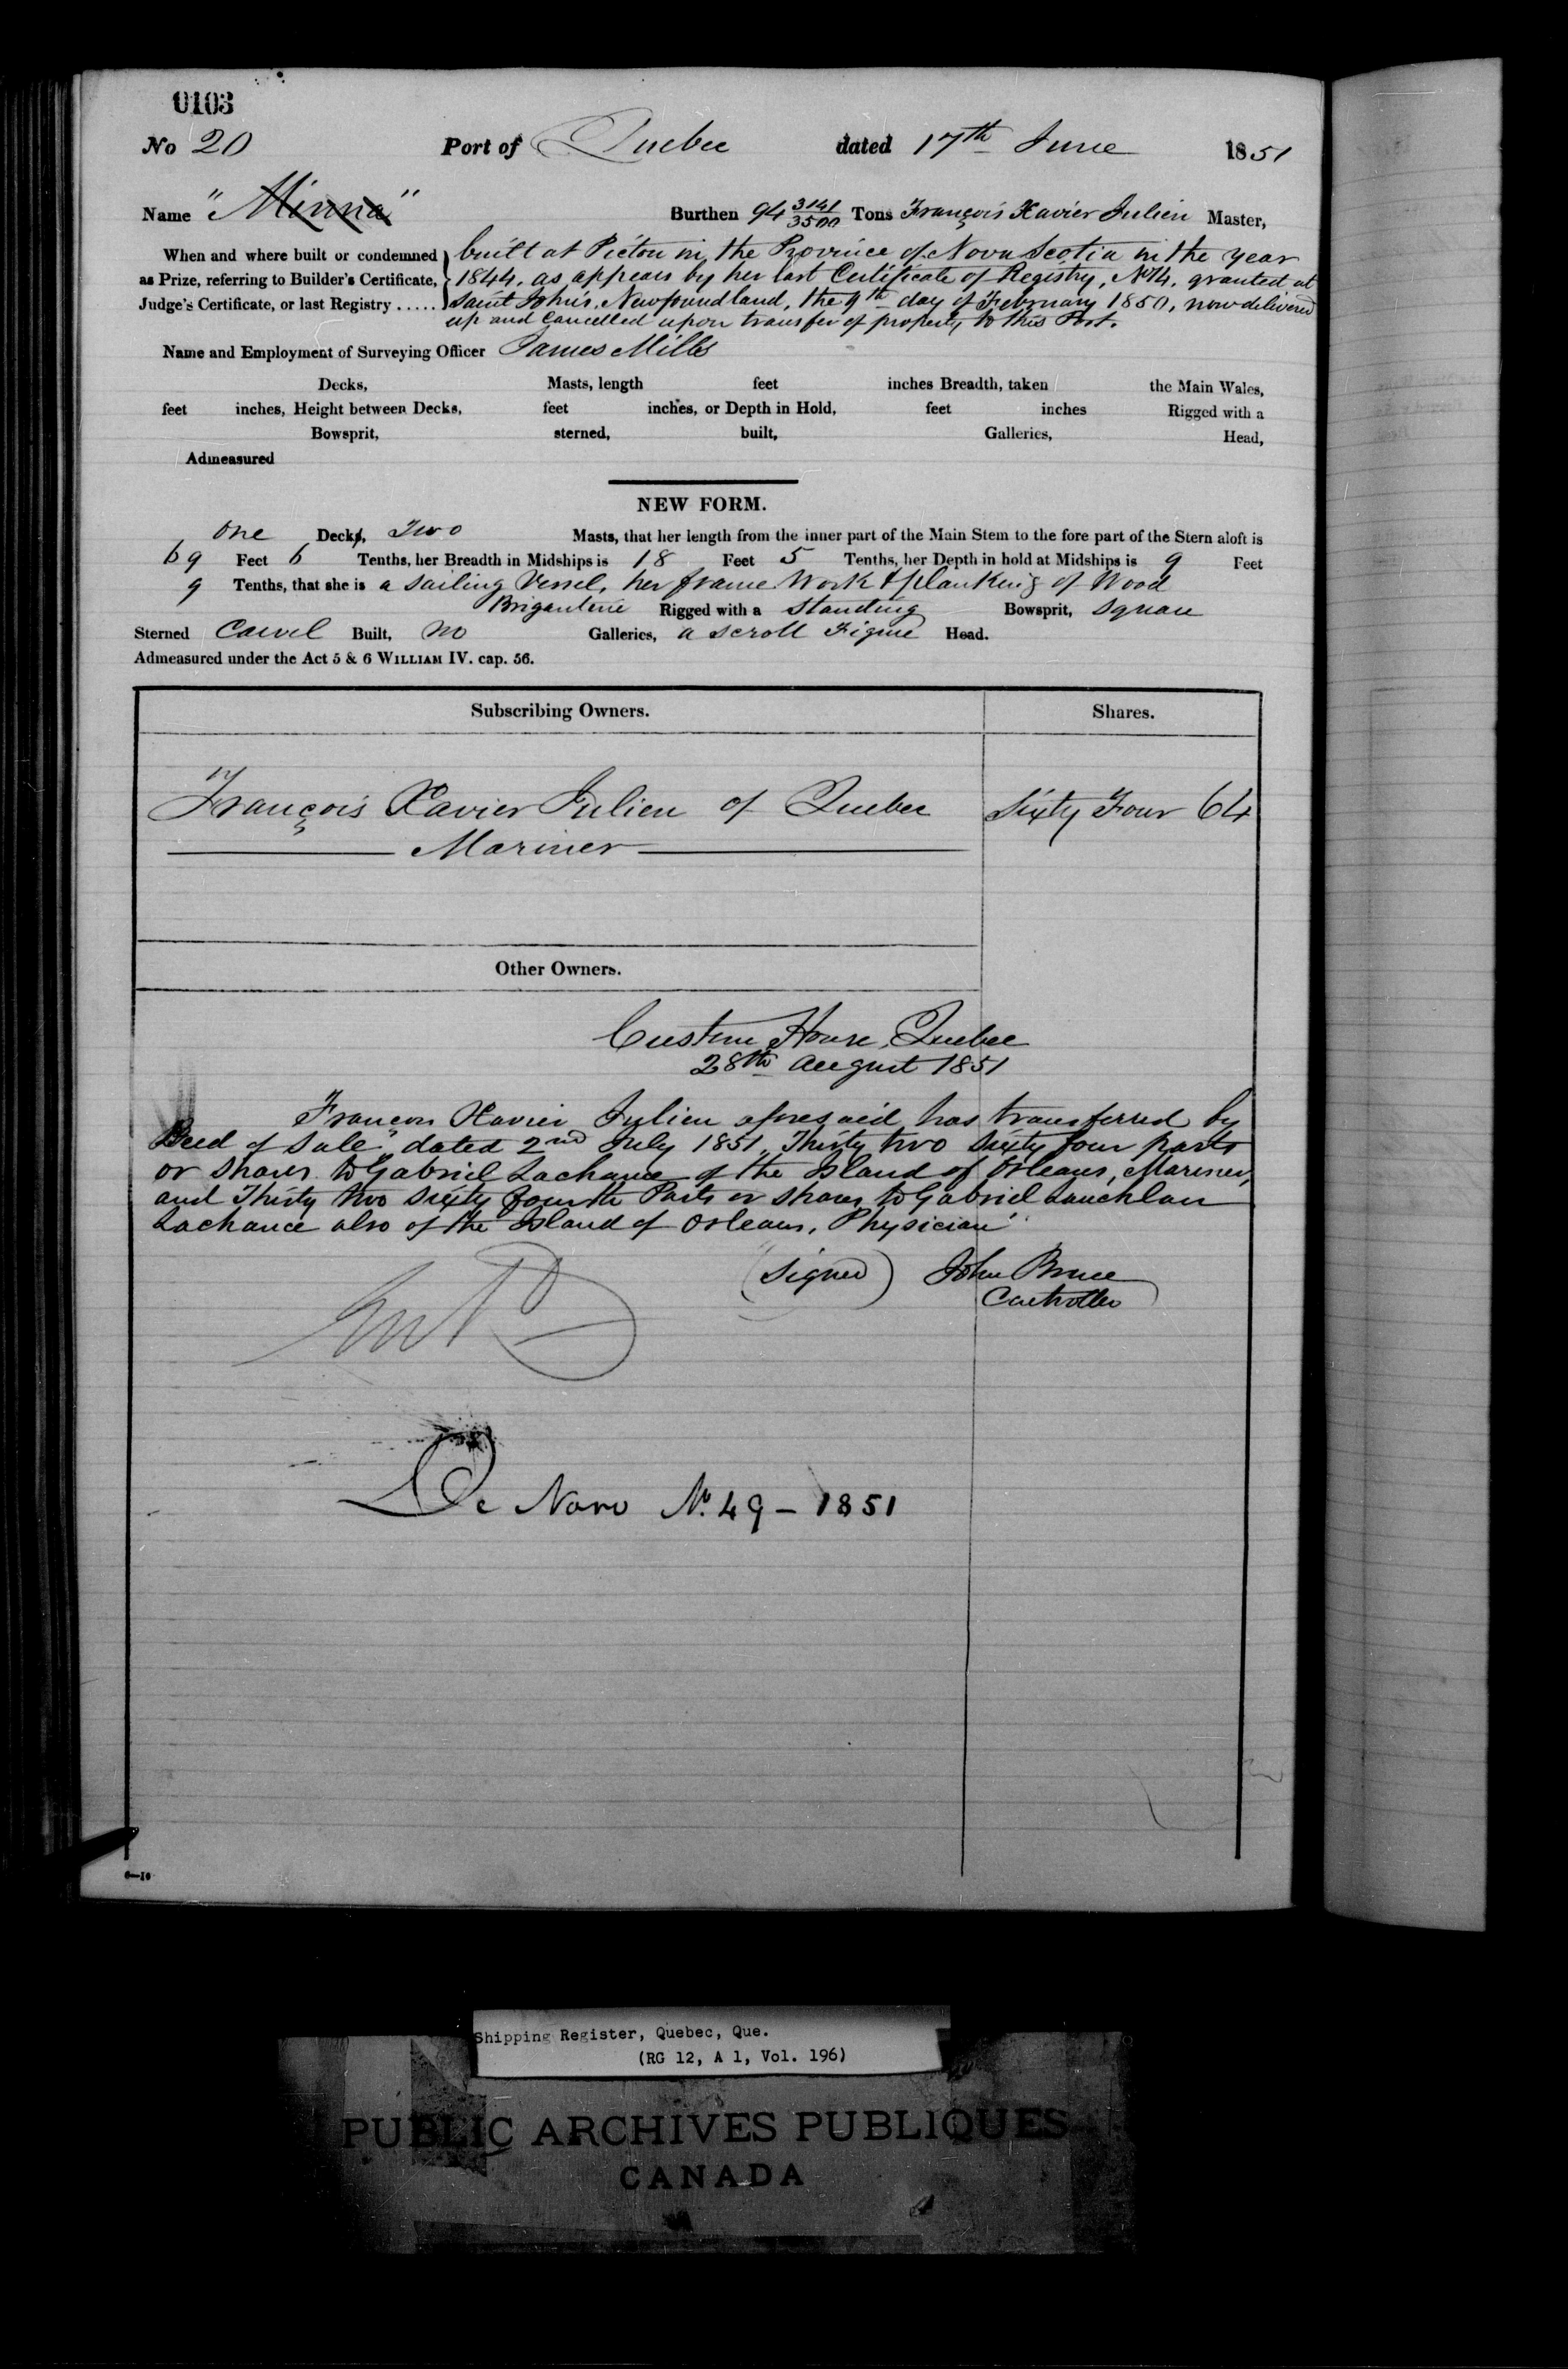 0103
No 20 Port of Quebec dated 17th June 1851
Name "Minna" Burthen 94 3141/3500 Tons François Xavier Julien Master,
When and where built or condemned as Prize, referring to Builder's Certificate, Judge's Certificate, or last Registry .....
built at Pictou in the Province of Nova Scotia in the year
1844, as appears by her last Certificate of Registry, No 14, granted at
Saint John's, Newfoundland, the 9th day of February 1850, now delivered
up and Cancelled upon transfer of property to this Port.
Name and Employment of Surveying Officer James Mills
Decks, Masts, length feet inches Breadth, taken the Main Wales,
feet inches, Height between Decks, feet inches, or Depth in Hold, feet inches Rigged with a
Bowsprit, sterned, built, Galleries, Head,
Admeasured
NEW FORM.
One Decks, Two Masts, that her length from the inner part of the Main Stem to the fore part of the Stern aloft is
69 Feet 6 Tenths, her Breadth in Midships is 18 Feet 5 Tenths, her Depth in hold at Midships is 9 Feet
9 Tenths, that she is a sailing Vessel, her frame Work & planking of Wood
Brigantine Rigged with a standing Bowsprit, square
Sterned Carvel Built, no Galleries, a scroll Figure Head.
Admeasured under the Act 5 & 6 WILLIAM IV. cap. 56.
Subscribing Owners. Shares.
François Xavier Julien of Quebec Sixty Four 64
Mariner
Other Owners.
Custom House, Quebec
28th August 1851
François Xavier Julien aforesaid has transferred by
"Deed of Sale" dated 2nd July 1851, Thirty two sixty four parts
or shares to Gabriel Lachance of the Island of Orleans, Mariner,
and Thirty two sixty fourth Parts or shares to Gabriel Lauchlan
Lachance also of the Island of Orleans, Physician
(Signed) John Bruce
Controller
De Novo No. 49 - 1851
6—16
Shipping Register, Quebec, Que.
(RG 12, A 1, Vol. 196)
PUBLIC ARCHIVES PUBLIQUES
CANADA